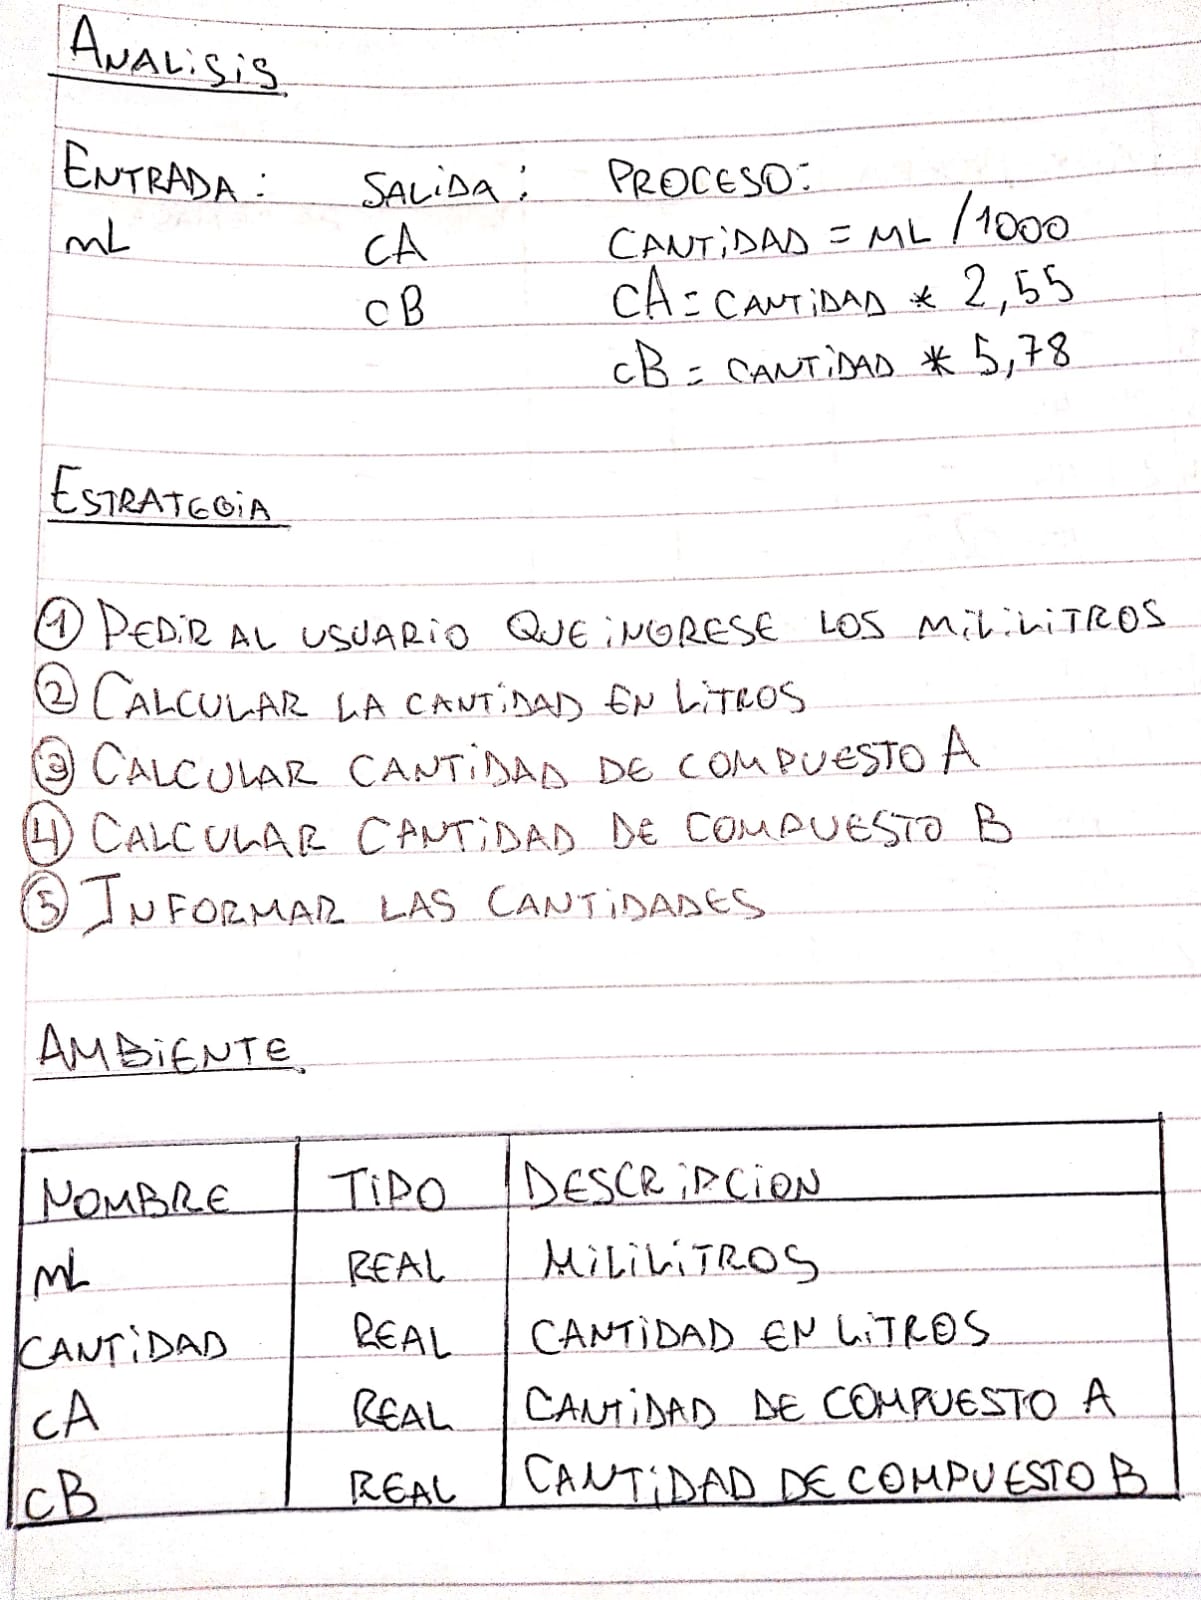 ANALiSiS
ENTRADA: SALiDA: PROCESO:
mL CA CANTiDAD = ML /1000
CB CA = CANTiDAD * 2,55
CB = CANTiDAD * 5,78
ESTRATEGiA
① PEDiR AL USUARiO QUE iNGRESE LOS MiLiLiTROS
② CALCULAR LA CANTiDAD EN LiTROS
③ CALCULAR CANTiDAD DE COMPUESTO A
④ CALCULAR CANTiDAD DE COMPUESTO B
⑤ INFORMAR LAS CANTiDADES
AMBiENTE.
NOMBRE TiPO DESCRiPCiON
mL REAL MiLiLiTROS
CANTiDAD REAL CANTiDAD EN LiTROS
CA REAL CANTiDAD DE COMPUESTO A
CB REAL CANTiDAD DE COMPUESTO B